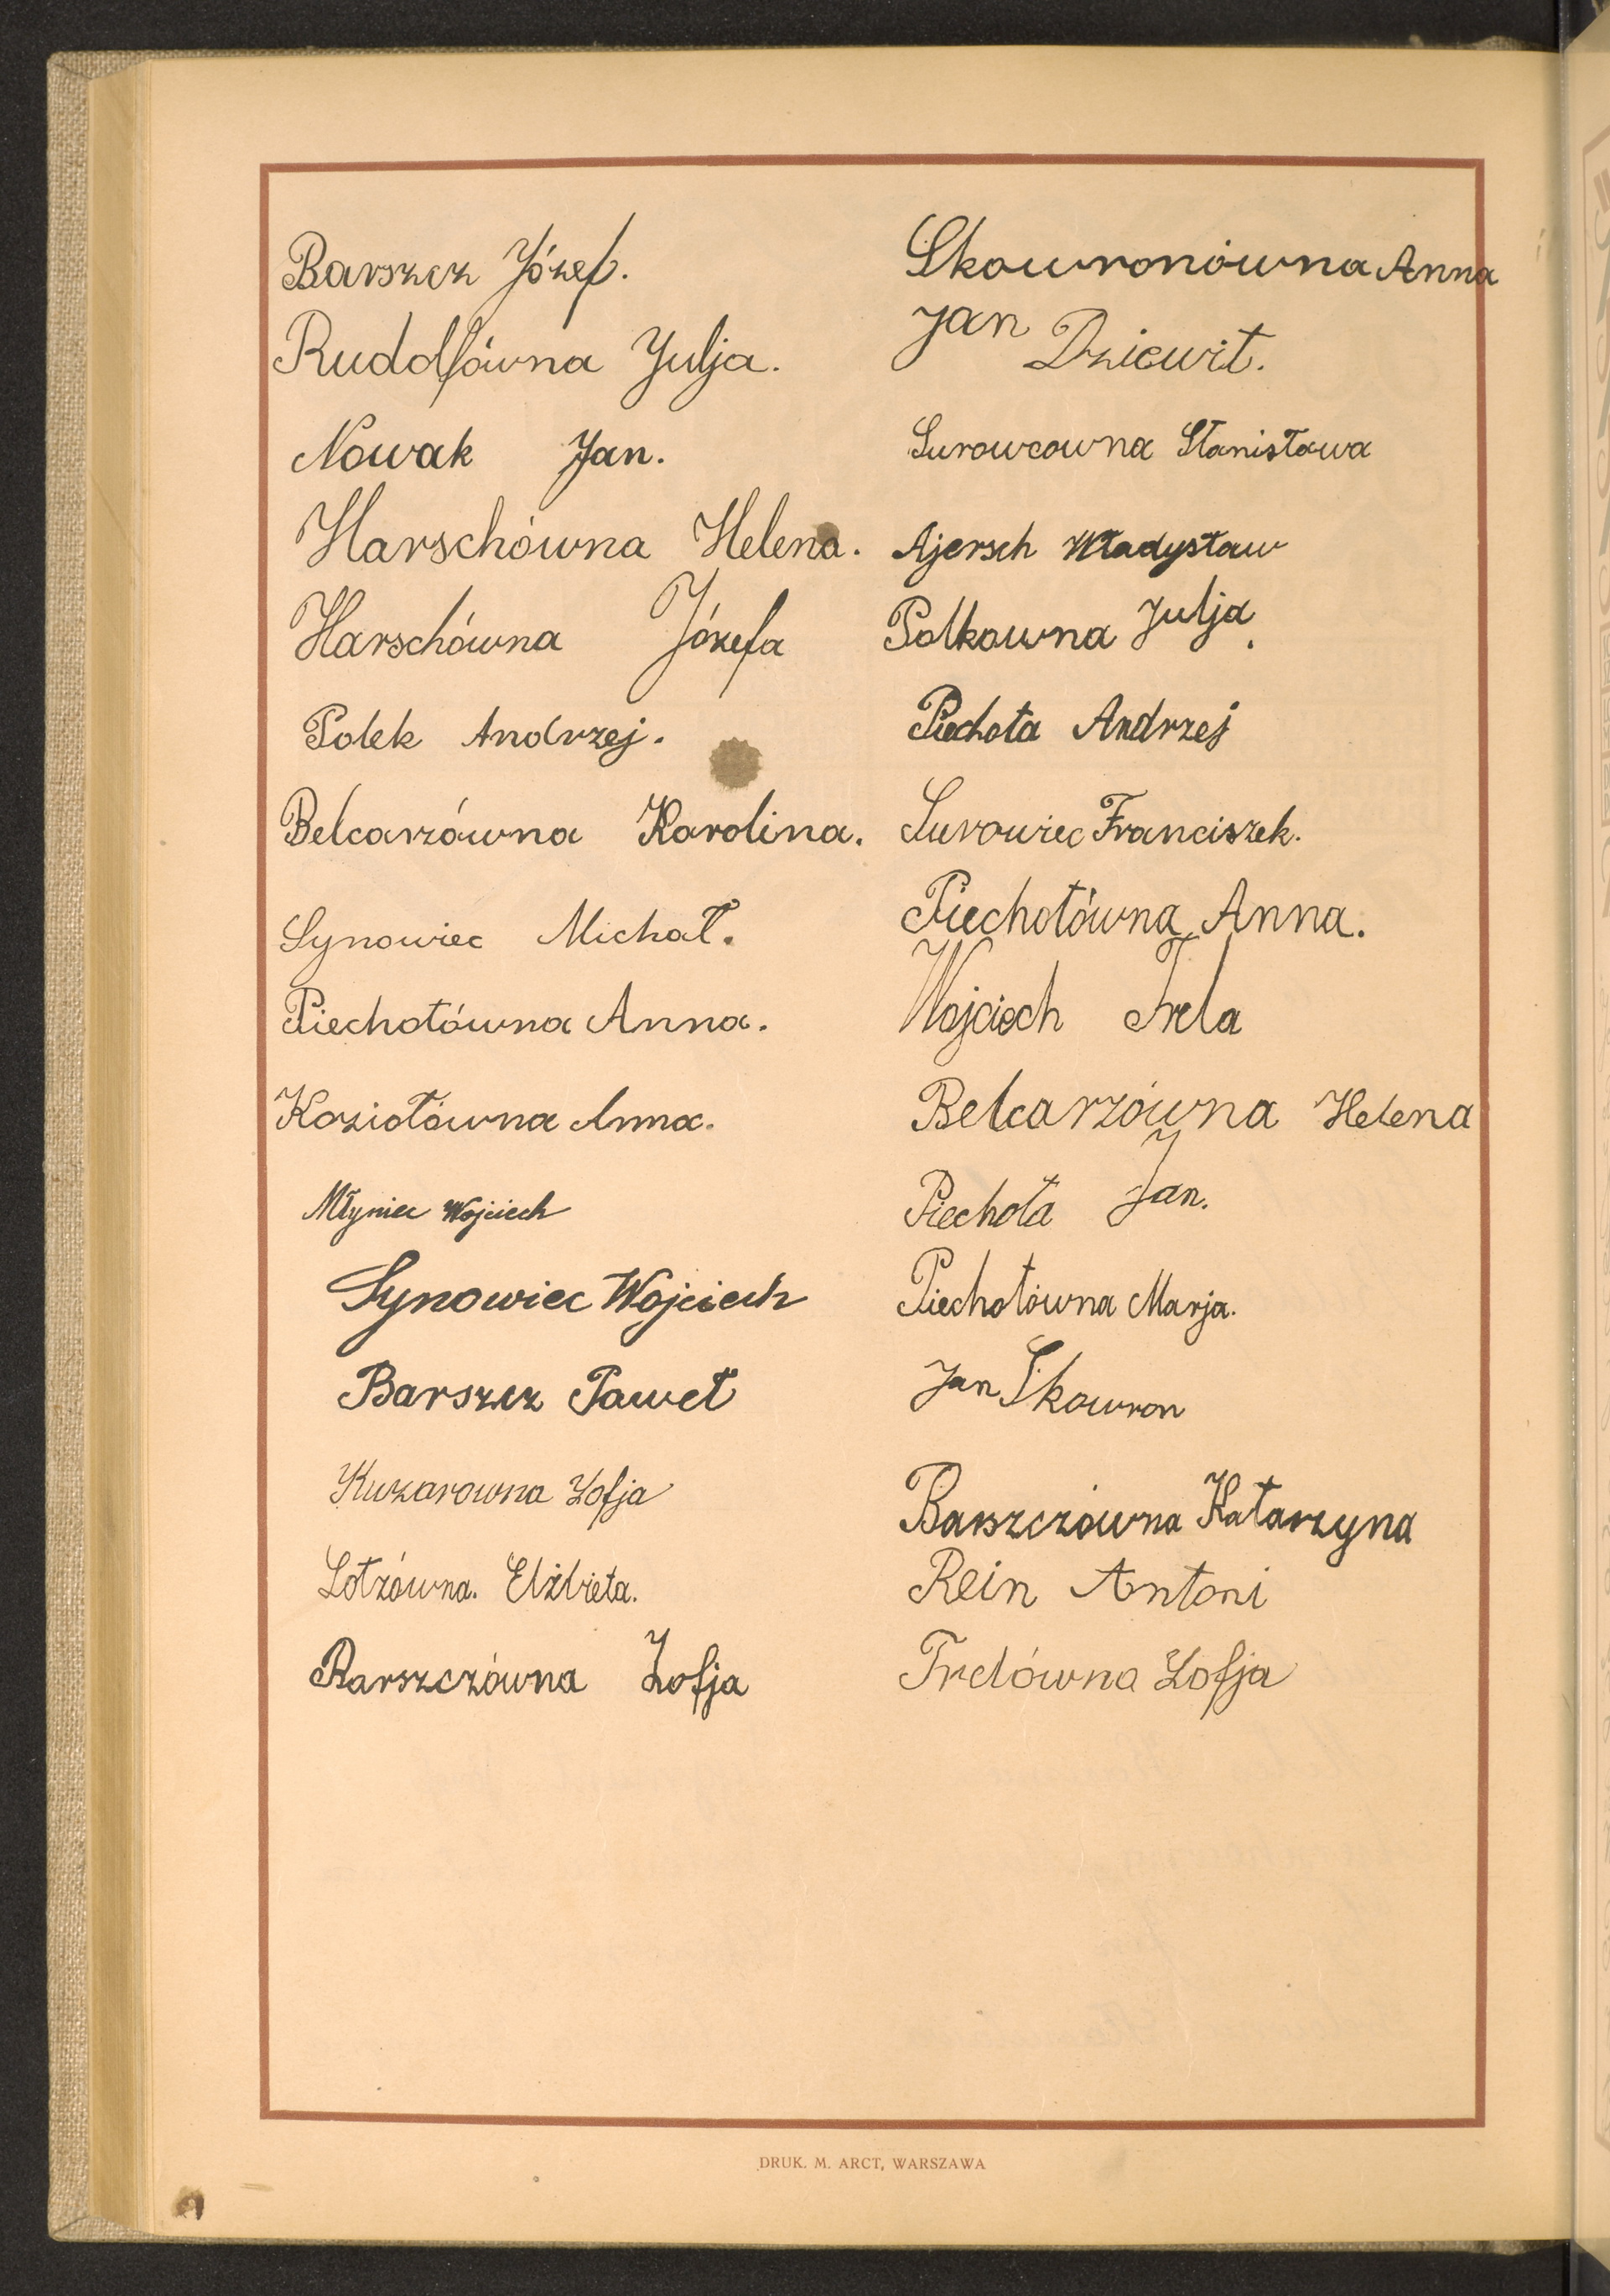 Barszcz Józef.
Rudolfówna Julja.
Nowak Jan.
Harschówna Helena.
Harschówna Józefa
Polek Andrzej.
Belcarzówna Karolina.
Synowiec Michał.
Piechotówna Anna.
Koziołówna Anna.
Młyniec Wojciech
Synowiec Wojciech
Barszcz Paweł
Kuzarowna Zofja
Lotzówna. Elżbieta.
Barszczówna Zofja
Skowronówna Anna
Jan Dziewit.
Surowcowna Stanisława
Ajersch Władysław
Polkowna Julja.
Piechota Andrzej
Surowiec Franciszek.
Piechotówna Anna.
Wojciech Trela
Belcarzówna Helena
Piechota Jan.
Piechotówna Marja.
Jan Skowron
Barszczówna Katarzyna
Rein Antoni
Trelówna Zofja
DRUK. M. ARCT, WARSZAWA